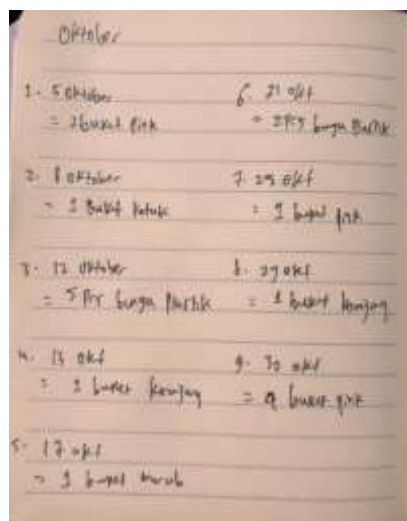 Oktober
1. 5 Oktober
= 2 buket Pink
2. 8 Oktober
= 1 Buket
3. 12 Oktober
= 5 Pcs bunga Plastik
4. 13 okt
= 1 buket
5. 17 okt
= 1 buket merah
6. 21 okt
= 2 Pcs bunga Plastik
7. 25 okt
= 1 buket pink
8. 27 okt
= 1 buket
9. 30 okt
= buket pink